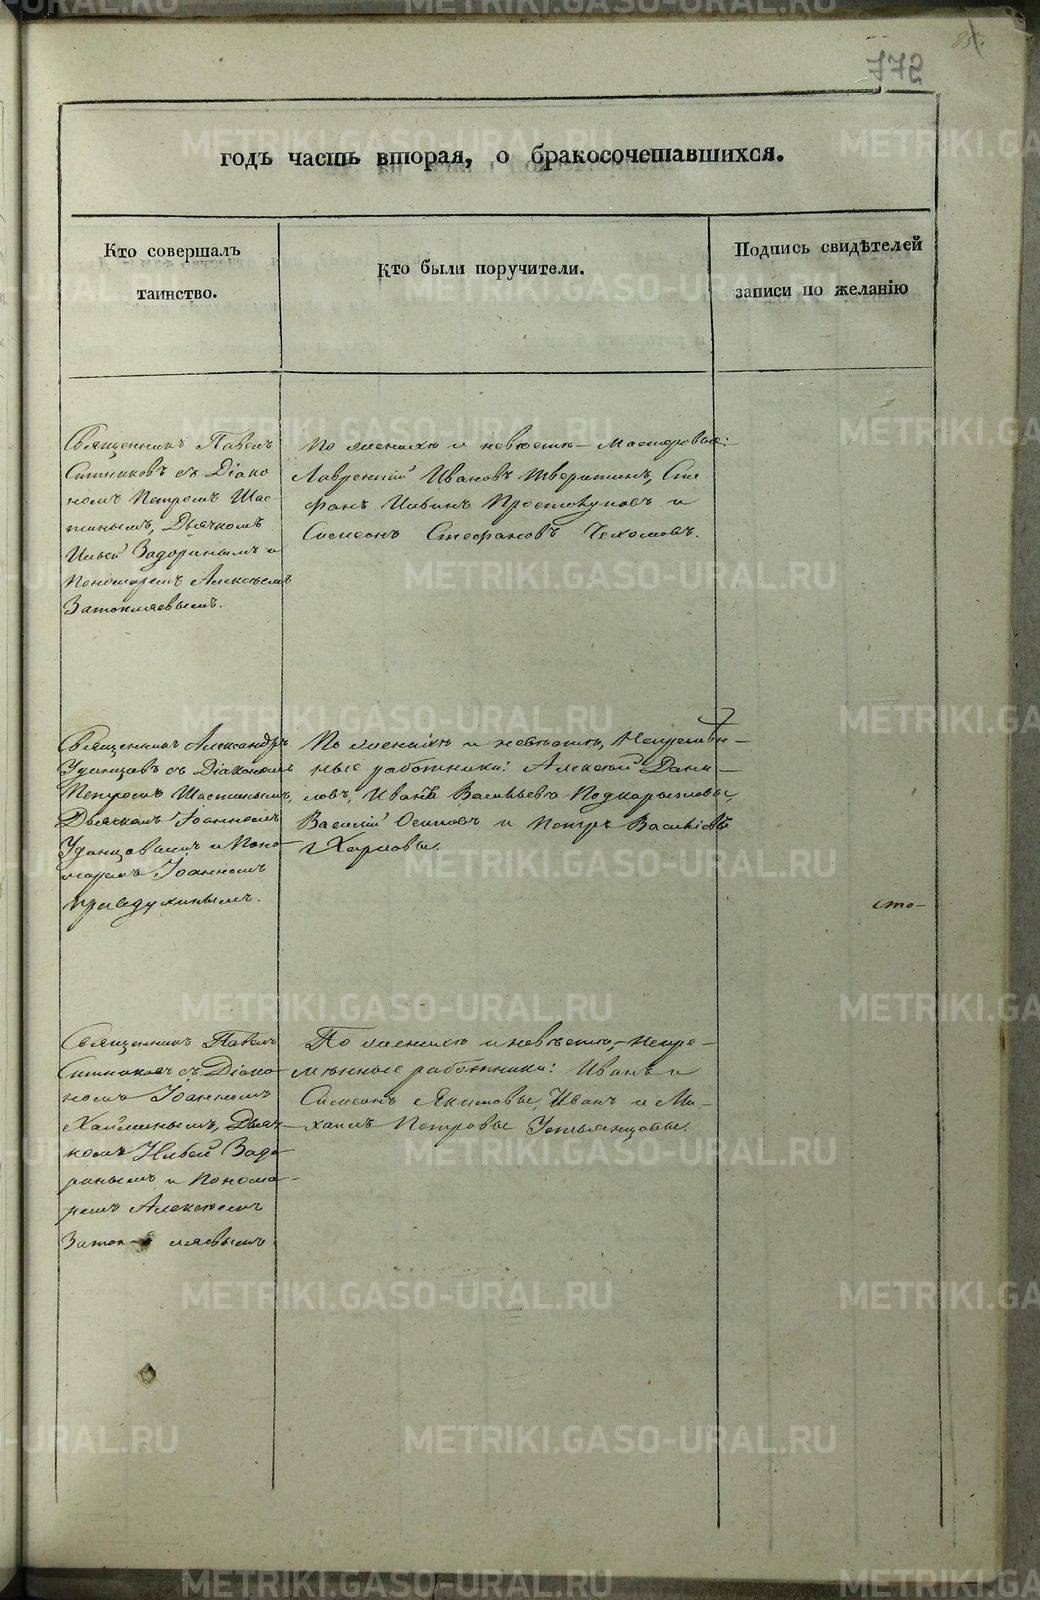 годъ часть вторая, о бракосочетавшихся.
Кто совершалъ
таинство.
Кто были поручители.
Подпись свидѣтелей
записи по желанію
Священникъ Павелъ
Ситниковъ съ Діако
номъ Петромъ Шас-
тинымъ, Дьячкомъ
Ильей Задоринымъ и
Пономаремъ Алексѣемъ
Затопляевымъ.
По женихѣ и невѣстѣ – Мастеровые:
Лаврентій Ивановъ Тверитинъ, Сте
фанъ Простокуповъ и
Симеонъ Стефановъ Чехомовъ.
Священникъ Александръ
Удинцовъ съ Діакономъ
Петромъ Шастинымъ,
Дьячкомъ Іоанномъ
Удинцовымъ и Поно-
маремъ Іоанномъ
По женихѣ и невѣстѣ, Непремѣн-
ные работники: Алексѣй Дани-
ловъ, Иванъ Васильевъ Подкорытовы,
Василій Осиповъ и Петръ Васильевъ
Харловы.
сто-
Священникъ Павелъ
Ситниковъ съ Діако
номъ Іоанномъ
Хайминымъ, Дьяч-
комъ Ильей Задо-
ринымъ и Понома-
ремъ Алексѣемъ
Затоп- ляевымъ.
По женихѣ и невѣстѣ, – Непре-
мѣнные работники: Иванъ и
Симеонъ Якимовы, Иванъ и Ми-
хаилъ Петровы Устьянцовы.
METRIKI.GASO-URAL.RU